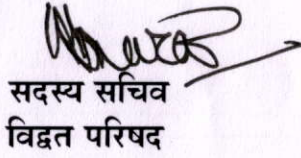 सदस्य सचिव
विद्वत परिषद